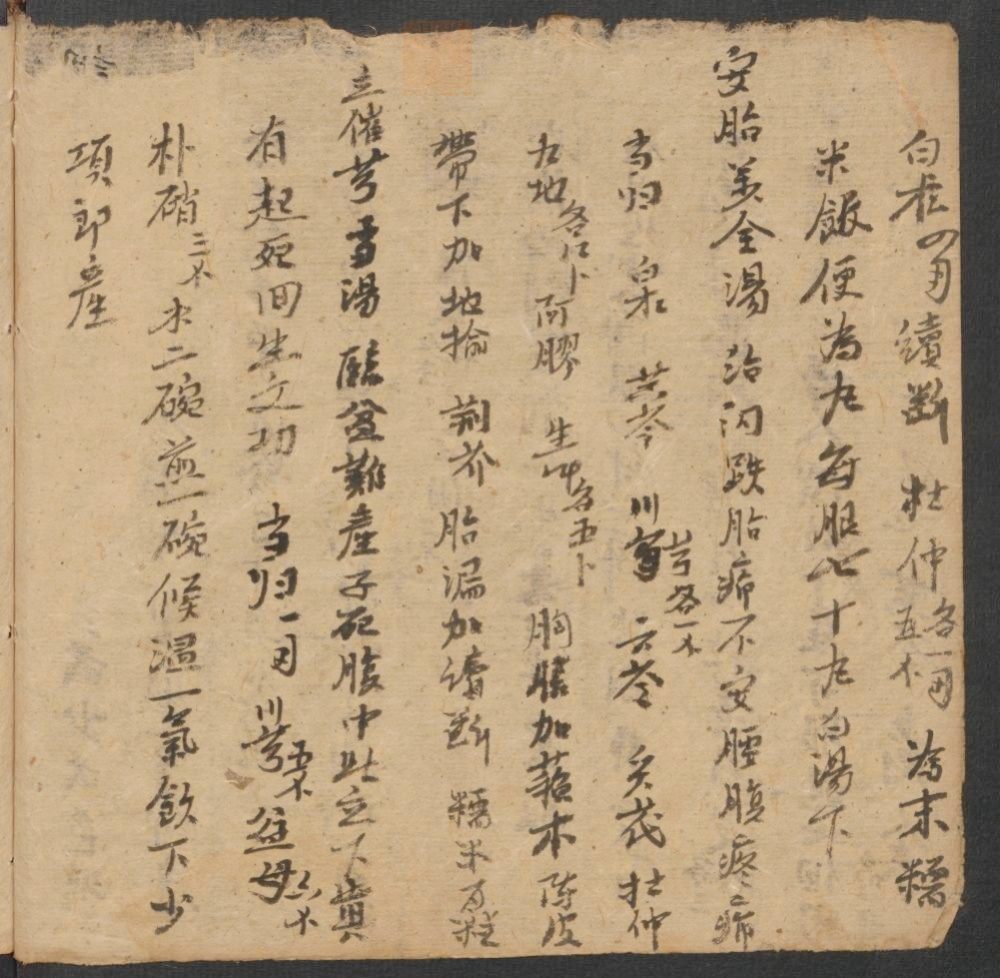 白朮四両 續断 杜仲各一両五不 為末糯
米飯便為丸每服七十丸白湯下
安胎羙全湯 治闪跌胎痛不安腰腹疼痛
当归 白朮 黄芩 川芎 芎各一不 云苓 炙茂 杜仲
九地各八卜 阿膠 生艸各五卜 胸膈加蘇木 陈皮
帶下加地揄 荊芥 胎漏加續断 糯米百粒
立催芎雪湯 臨盆難產子死腹中此立下真
有起死回生之功 当归一両 川芎五不 益母六不
朴硝三不 水二碗煎一碗候温一氣飲下少
項即産